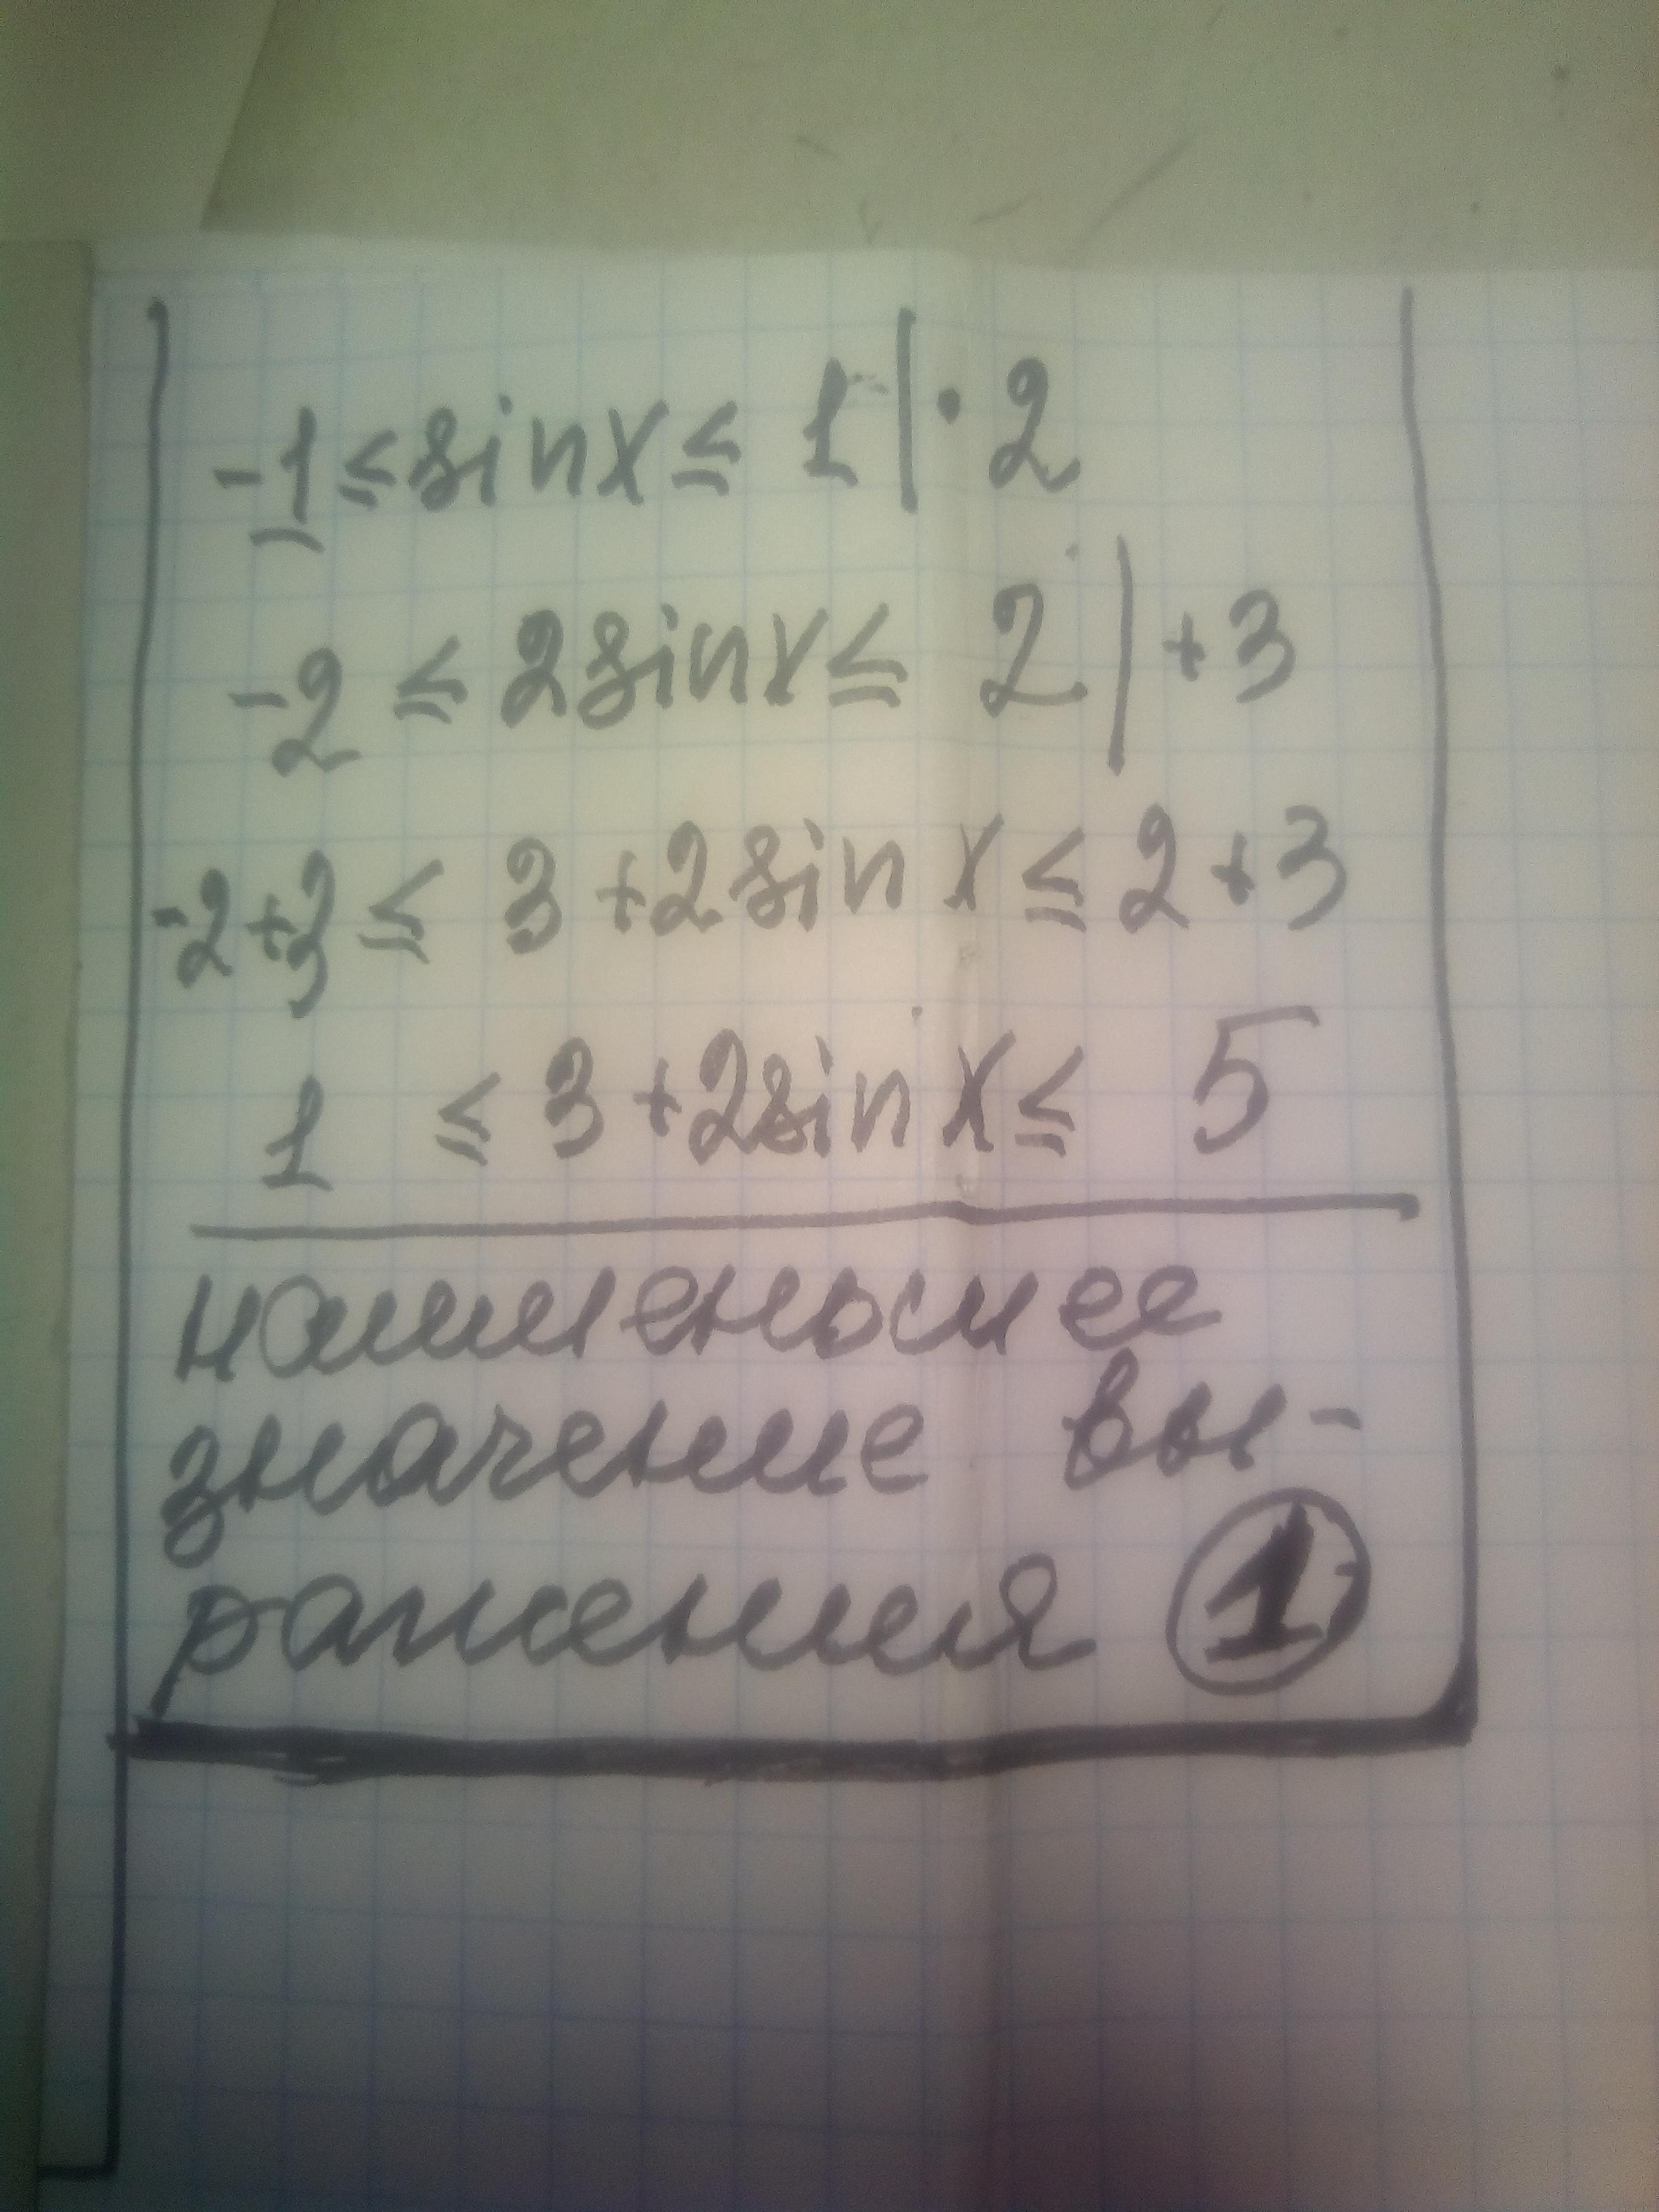 -1 ≤ sin x ≤ 1 | · 2
-2 ≤ 2 sin x ≤ 2 | + 3
-2 + 3 ≤ 3 + 2 sin x ≤ 2 + 3
1 ≤ 3 + 2 sin x ≤ 5
наименьшее
значение вы-
ражения 1